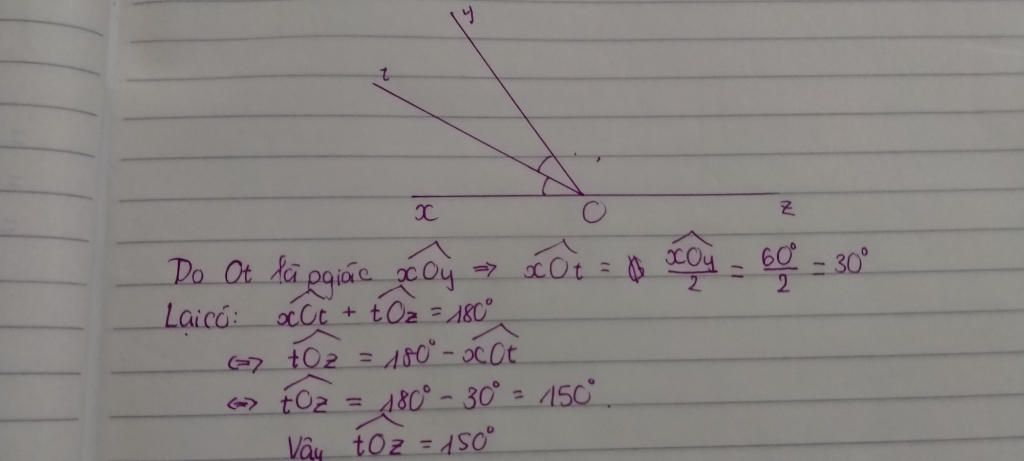 y
t
x O z
Do Ot là pgiác xOy ⇒ xOt = xOy/2 = 60°/2 = 30°
Lại có: xOt + tOz = 180°
⇔ tOz = 180° - xOt
⇔ tOz = 180° - 30° = 150°.
Vậy tOz = 150°